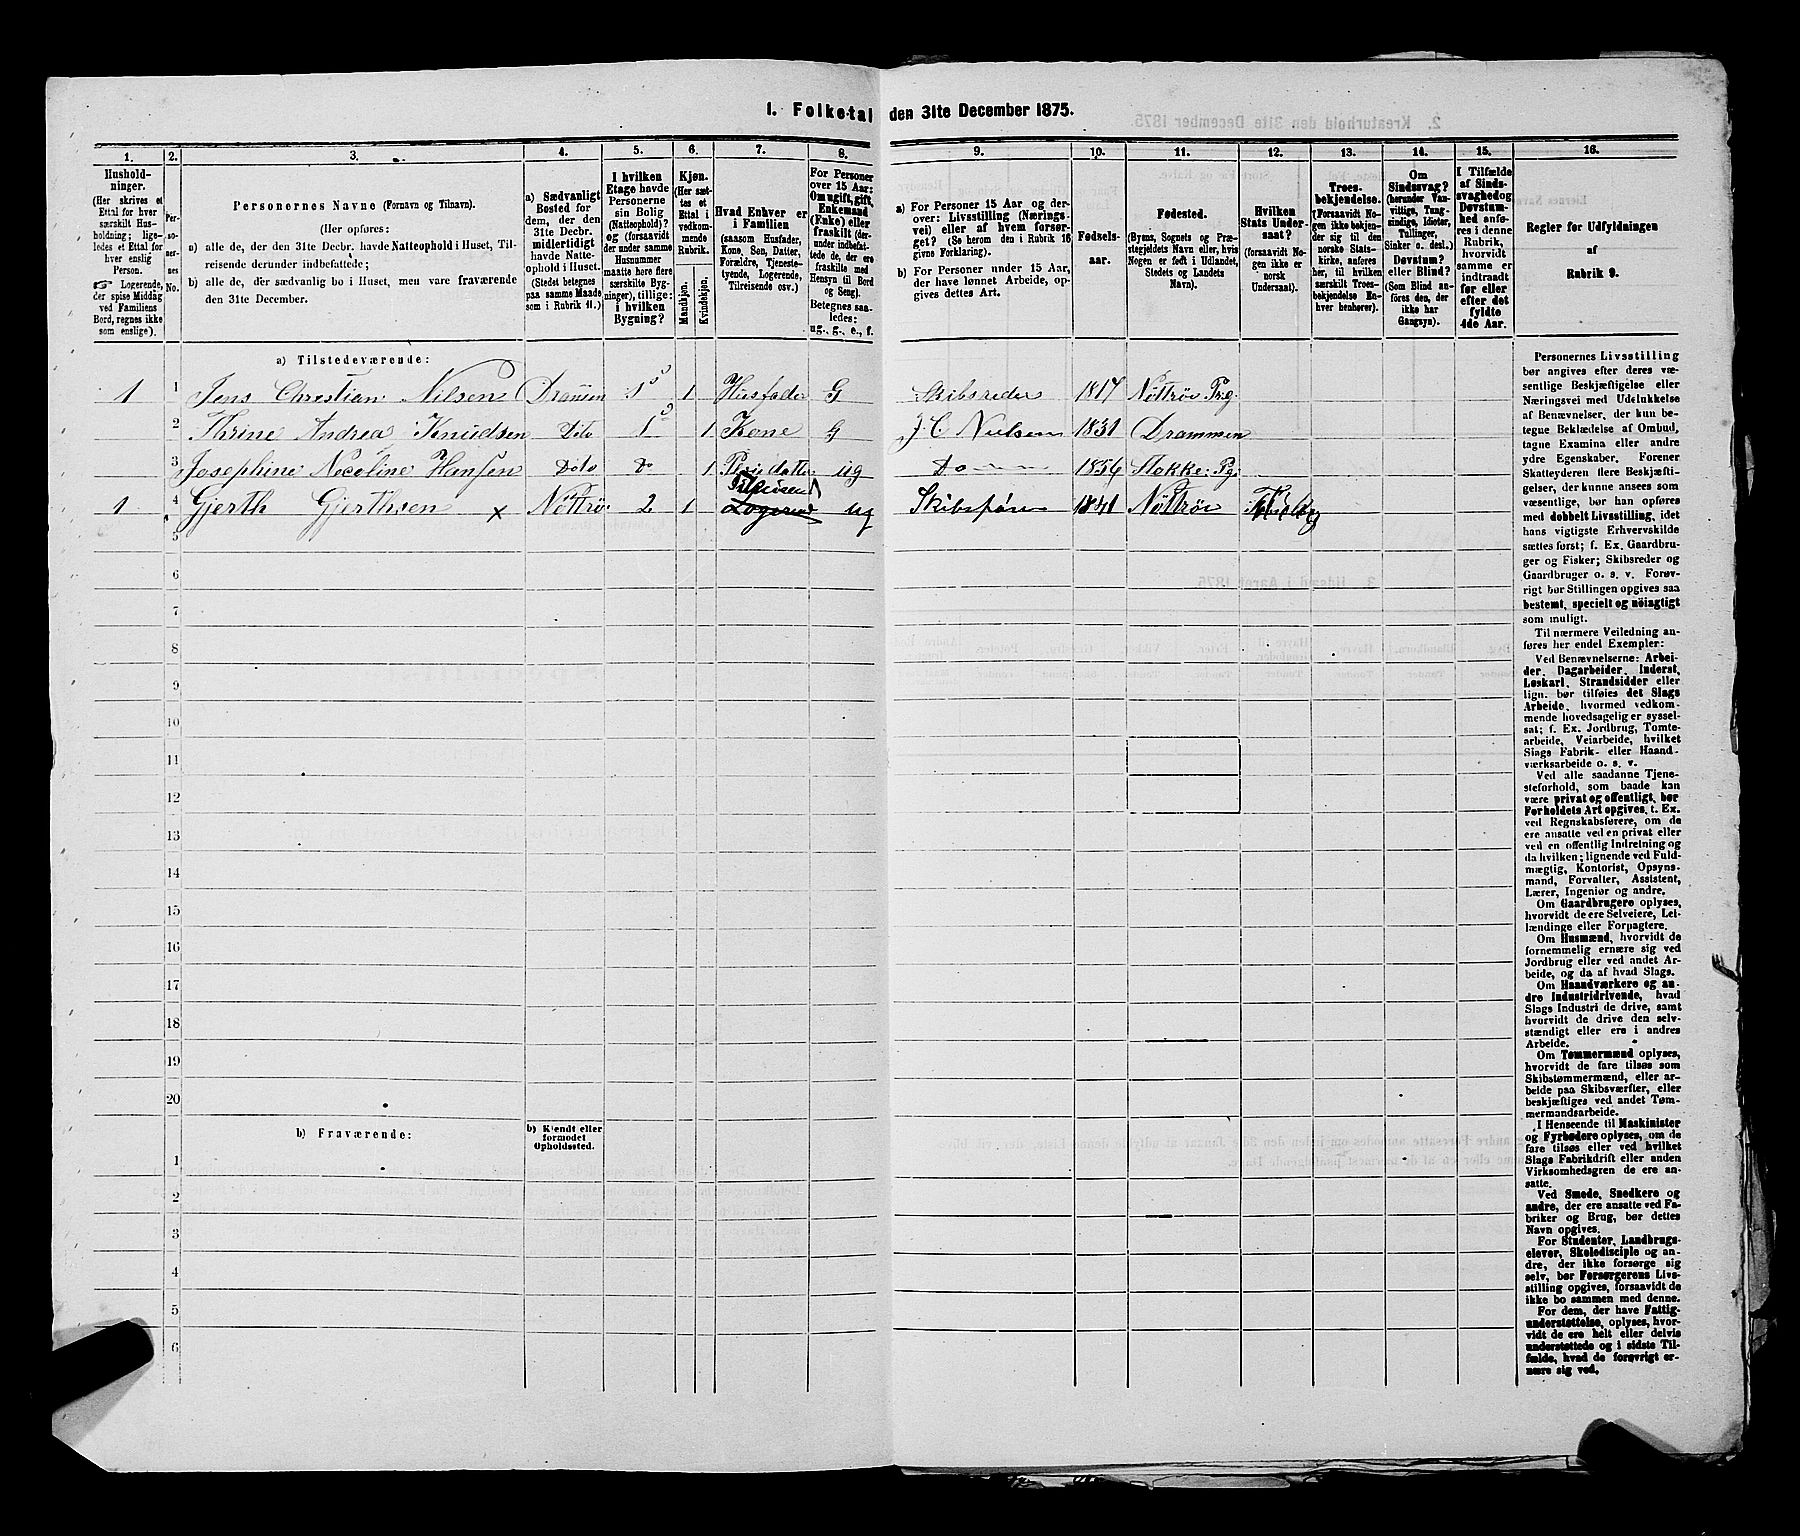 1. Folketal den 31te December 1875.
1.
2.
3.
4.
5.
6.
7.
8.
9.
10.
11.
12.
13.
14.
15.
16.
Hushold-
ninger.
(Her skrives et
Ettal for hver
særskilt Hus-
holdning; lige-
ledes et Ettal for
hver enslig
Person.
☞ Logerende,
der spise Middag
ved Familiens
Bord, regnes ikke
som enslige).
Per-
so-
ner-
nes
No.
Personernes Navne (Fornavn og Tilnavn).
(Her opføres:
a) alle de, der den 31te Decbr. havde Natteophold i Huset, Til-
reisende derunder indbefattede;
b) alle de, der sædvanlig bo i Huset, men vare fraværende
den 31te December.
a) Sædvanligt
Bosted for
dem, der den
31te Decbr.
midlertidigt
havde Natte-
ophold i Huset.
(Stedet betegnes
paa samme Maade
som i Rubrik 11.)
I hvilken
Etage havde
Personerne
sin Bolig
(Natteophold)?
og (forsaavidt
der under samme
Husnummer
maatte høre flere
særskilte Byg-
ninger), tillige:
i hvilken
Bygning?
Kjøn.
(Her sæt-
tes et
Ettal i
vedkom-
mende
Rubrik.
Mandkjøn.
Kvindekjøn.
Hvad Enhver er
i Familien
(saasom Husfader,
Kone, Søn, Datter,
Forældre, Tjeneste-
tyende, Logerende,
Tilreisende osv.)
For Personer
over 15 Aar:
Om ugift, gift,
Enkemand
(Enke) eller
fraskilt (der-
under indbefat-
tede de, der ere
fraskilte med
Hensyn til Bord
og Seng).
Betegnes saa-
ledes:
ug., g., e., f.
a) For Personer 15 Aar og der-
over: Livsstilling (Nærings-
vei) eller af hvem forsør-
get? (Se herom den i Rubrik 16
givne Forklaring).
b) For Personer under 15 Aar,
der have lønnet Arbeide, op-
gives dettes Art.
Fødsels-
aar.
Fødested.
(Byens, Sognets og Præ-
stegjeldets Navn eller, hvis
Nogen er født i Udlandet,
Stedets og Landets
Navn).
Hvilken
Stats Under-
saat?
(forsaavidt No-
gen ikke er
norsk
Undersaat).
Troes-
bekjendelse.
(Forsaavidt No-
gen ikke bekjen-
der sig til den
norske Stats-
kirke, anføres
her, til hvilken
særskilt Troes-
bekjendelse En-
hver henhører).
Om
Sindssvag?
(herunder Van-
vittige, Tung-
sindige, Idioter,
Tullinger,
Sinker o. desl.)
Døvstum?
eller Blind?
(Som Blind an-
føres den, der
ikke har
Gangsyn).
I Tilfælde
af Sinds-
svaghed og
Døvstum-
hed anfø-
res i denne
Rubrik,
hvorvidt
samme er
indtraadt
før eller
efter det
fyldte
4de Aar.
Regler for Udfyldningen
af
Rubrik 9.
a) Tilstedeværende:
1 1 Jens Chrestian Nilsen Drammen 1 1 Husfader G Skibsreder 1817 Nøttrøe Prg.
2 Thrine Andrea Knudsen Dito 1 1 Kone G J. C Nielsen 1831 Drammen
3 Josephine Nocoline Hansen Dolo Do 1 Pleiedatter ug Do 1856 Stokke Pg.
Tilreisend
1 4 Gjerth Gjerthsen x Nøttrø 2 1 Logerend ug Skibsfører 1841 Nøttrøe
5
6
7
8
9
10
11
12
13
14
15
16
17
18
19
20
b) Fraværende:
b) Kjendt eller
formodet
Opholdssted.
1
2
3
4
5
6
Personernes Livsstilling
bør angives efter deres væ-
sentlige Beskjæftigelse eller
Næringsvei med Udelukkelse
af Benævnelser, der kun be-
tegne Beklædelse af Ombud,
tagne Examina eller andre
ydre Egenskaber. Forener
Skatteyderen flere Beskjæfti-
gelser, der kunne ansees som
væsentlige, bør han opføres
med dobbelt Livsstilling, idet
hans vigtigste Erhvervskilde
sættes først; f. Ex. Gaardbru-
ger og Fisker; Skibsreder og
Gaardbruger o. s. v. Forøv-
rigt bør Stillingen opgives saa
bestemt, specielt og nøiagtigt
som muligt.
Til nærmere Veiledning an-
føres her endel Exempler:
Ved Benævnelserne: Arbei-
der, Dagarbeider, Inderst,
Løskarl, Strandsidder eller
lign. bør tilføies det Slags
Arbeide, hvormed vedkom-
mende hovedsagelig er syssel-
sat; f. Ex. Jordbrug, Tomte-
arbeide, Veiarbeide, hvilket
Slags Fabrik- eller Haand-
værksarbeide o. s. v.
Ved alle saadanne Tjene-
steforhold, som baade kan
være privat og offentligt, bør
Forholdets Art opgives, t. Ex.
ved Regnskabsførere, om de
ere ansatte ved en privat eller
ved en offentlig Indretning og
da hvilken; lignende ved Fuld-
mægtig, Kontorist, Opsyns-
mand, Forvalter, Assistent,
Lærer, Ingeniør og andre.
Om Gaardbrugere oplyses,
hvorvidt de ere Selveiere, Lei-
lændinge eller Forpagtere.
Om Husmænd, hvorvidt de
fornemmelig ernære sig ved
Jordbrug eller ved andet Ar-
beide, og da af hvad Slags.
Om Haandværkere og an-
dre Industridrivende, hvad
Slags Industri de drive, samt
hvorvidt de drive den selv-
stændigt eller ere i andres
Arbeide.
Om Tømmermænd oplyses,
hvorvidt de fare tilsøs som
Skibstømmermænd, eller ar-
beide paa Skibsværfter, eller
beskjæftiges ved andet Tøm-
mermandsarbeide.
I Henseende til Maskinister
og Fyrbødere oplyses, om de
fare tilsøs eller ved hvilket
Slags Fabrikdrift eller anden
Virksomhedsgren de ere an-
satte.
Ved Smede, Snedkere og
andre, der ere ansatte ved Fa-
briker og Brug, bør dettes
Navn opgives.
For Studenter, Landbrugs-
elever, Skoledisciple og an-
dre, der ikke forsørge sig
selv, bør Forsørgerens Livs-
stilling opgives, forsaavidt de
ikke bo sammen med denne.
For dem, der have Fattig-
understøttelse, oplyses, hvor-
vidt de ere helt eller delvis
understøttede og i sidste Til-
fælde, hvad de forøvrigt er-
nære sig ved.